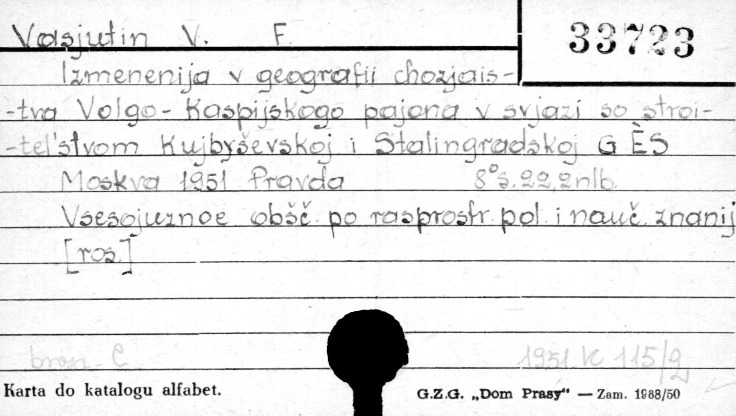 Vasjutin V. F. 33723
Izmenenija v geografii chozjais-
-tva Volgo-Kaspijskogo pajona v svjazi so stroi-
-tel'stvom Kujbyševskoj i Stalingradskoj GÈS
Moskva 1951 Pravda 8° s. 22, 2nlb.
Vsesojuznoe obšč. po rasprostr. pol. i nauč. znanij
[ros.]
bron. C 1951 K 115/2
Karta do katalogu alfabet. G.Z.G. „Dom Prasy" — Zam. 1988/50